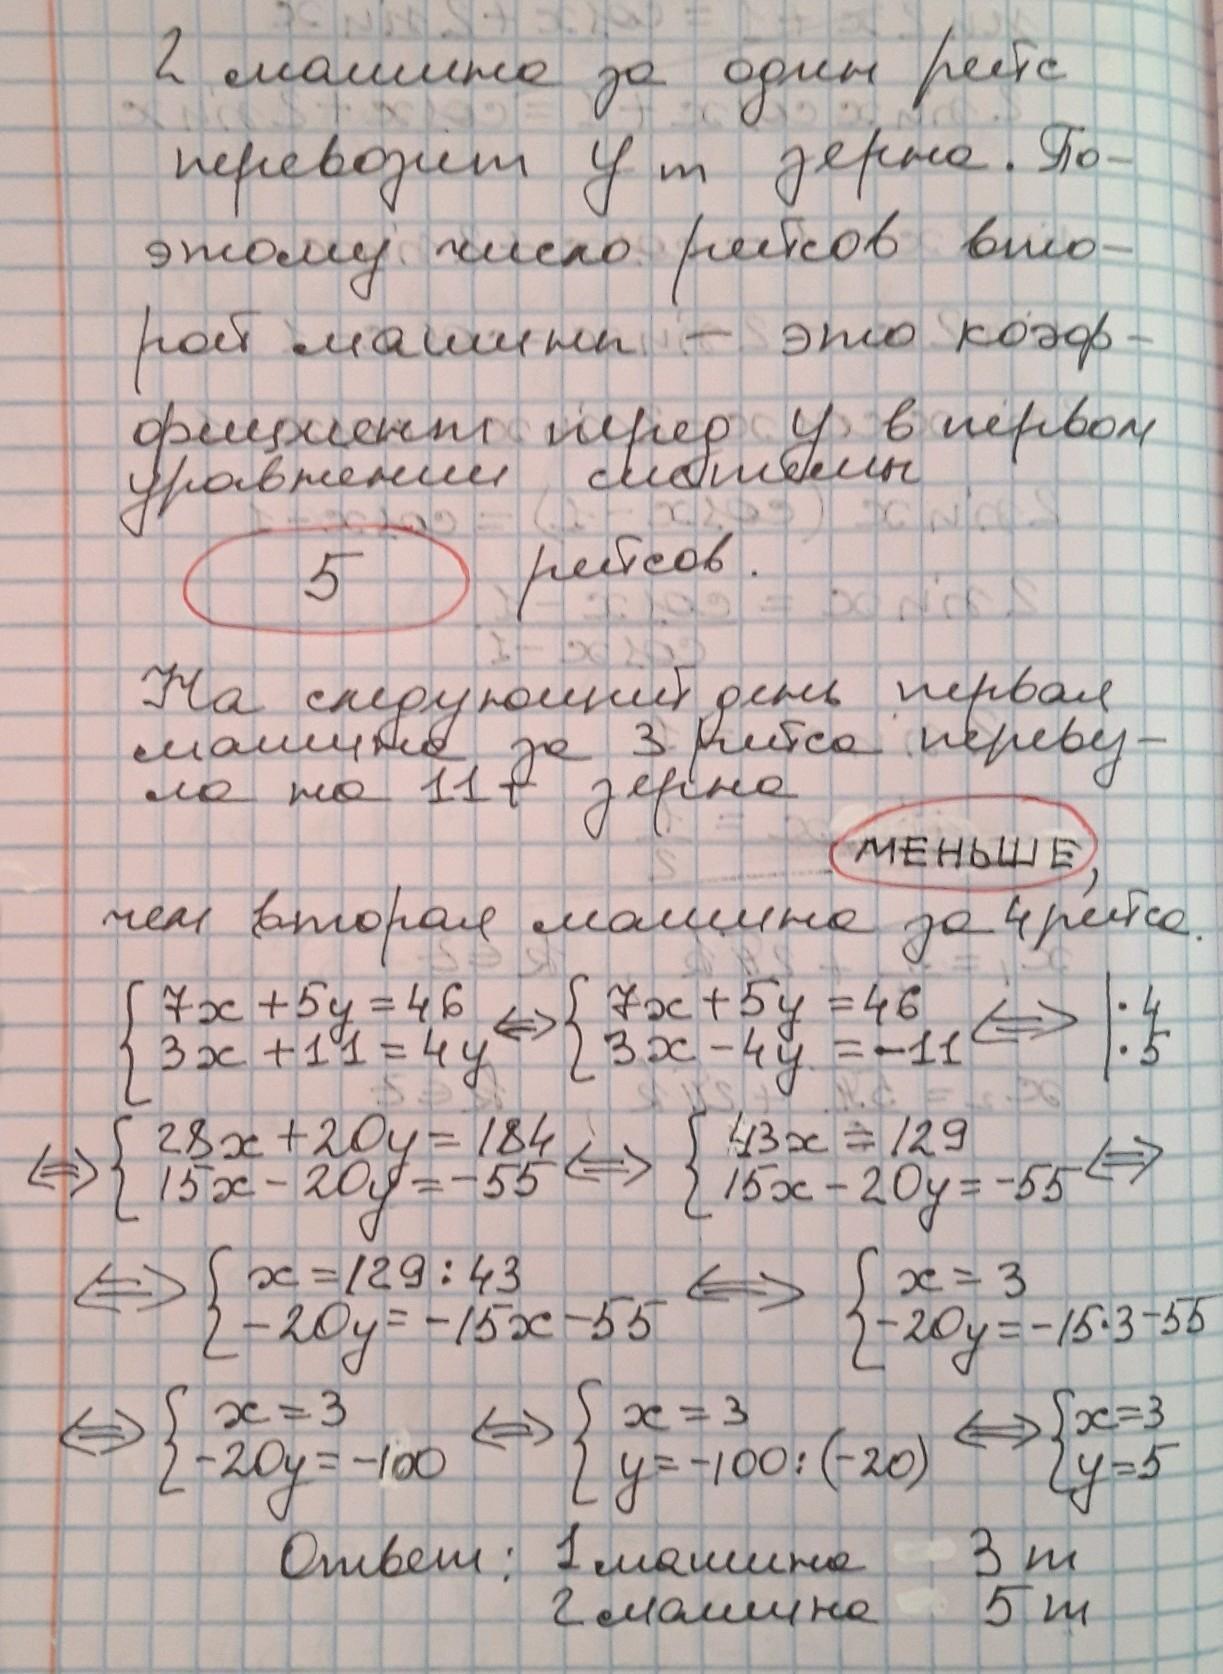 2 машина за один рейс
перевозит y т зерна. По-
этому число рейсов вто-
рой машины – это коэф-
фициент перед y в первом
уравнении системы
5 рейсов.
На следующий день первая
машина за 3 рейса перевез-
ла на 11 т зерна
МЕНЬШЕ,
чем вторая машина за 4 рейса.
{ 7x + 5y = 46 ⇔ { 7x + 5y = 46 ⇔ | · 4
{ 3x + 11 = 4y { 3x - 4y = -11 | · 5
⇔ { 28x + 20y = 184 ⇔ { 43x = 129 ⇔
{ 15x - 20y = -55 { 15x - 20y = -55
⇔ { x = 129 : 43 ⇔ { x = 3
{ -20y = -15x - 55 { -20y = -15·3 - 55
⇔ { x = 3 ⇔ { x = 3 ⇔ { x = 3
{ -20y = -100 { y = -100 : (-20) { y = 5
Ответ: 1 машина 3 т
2 машина 5 т